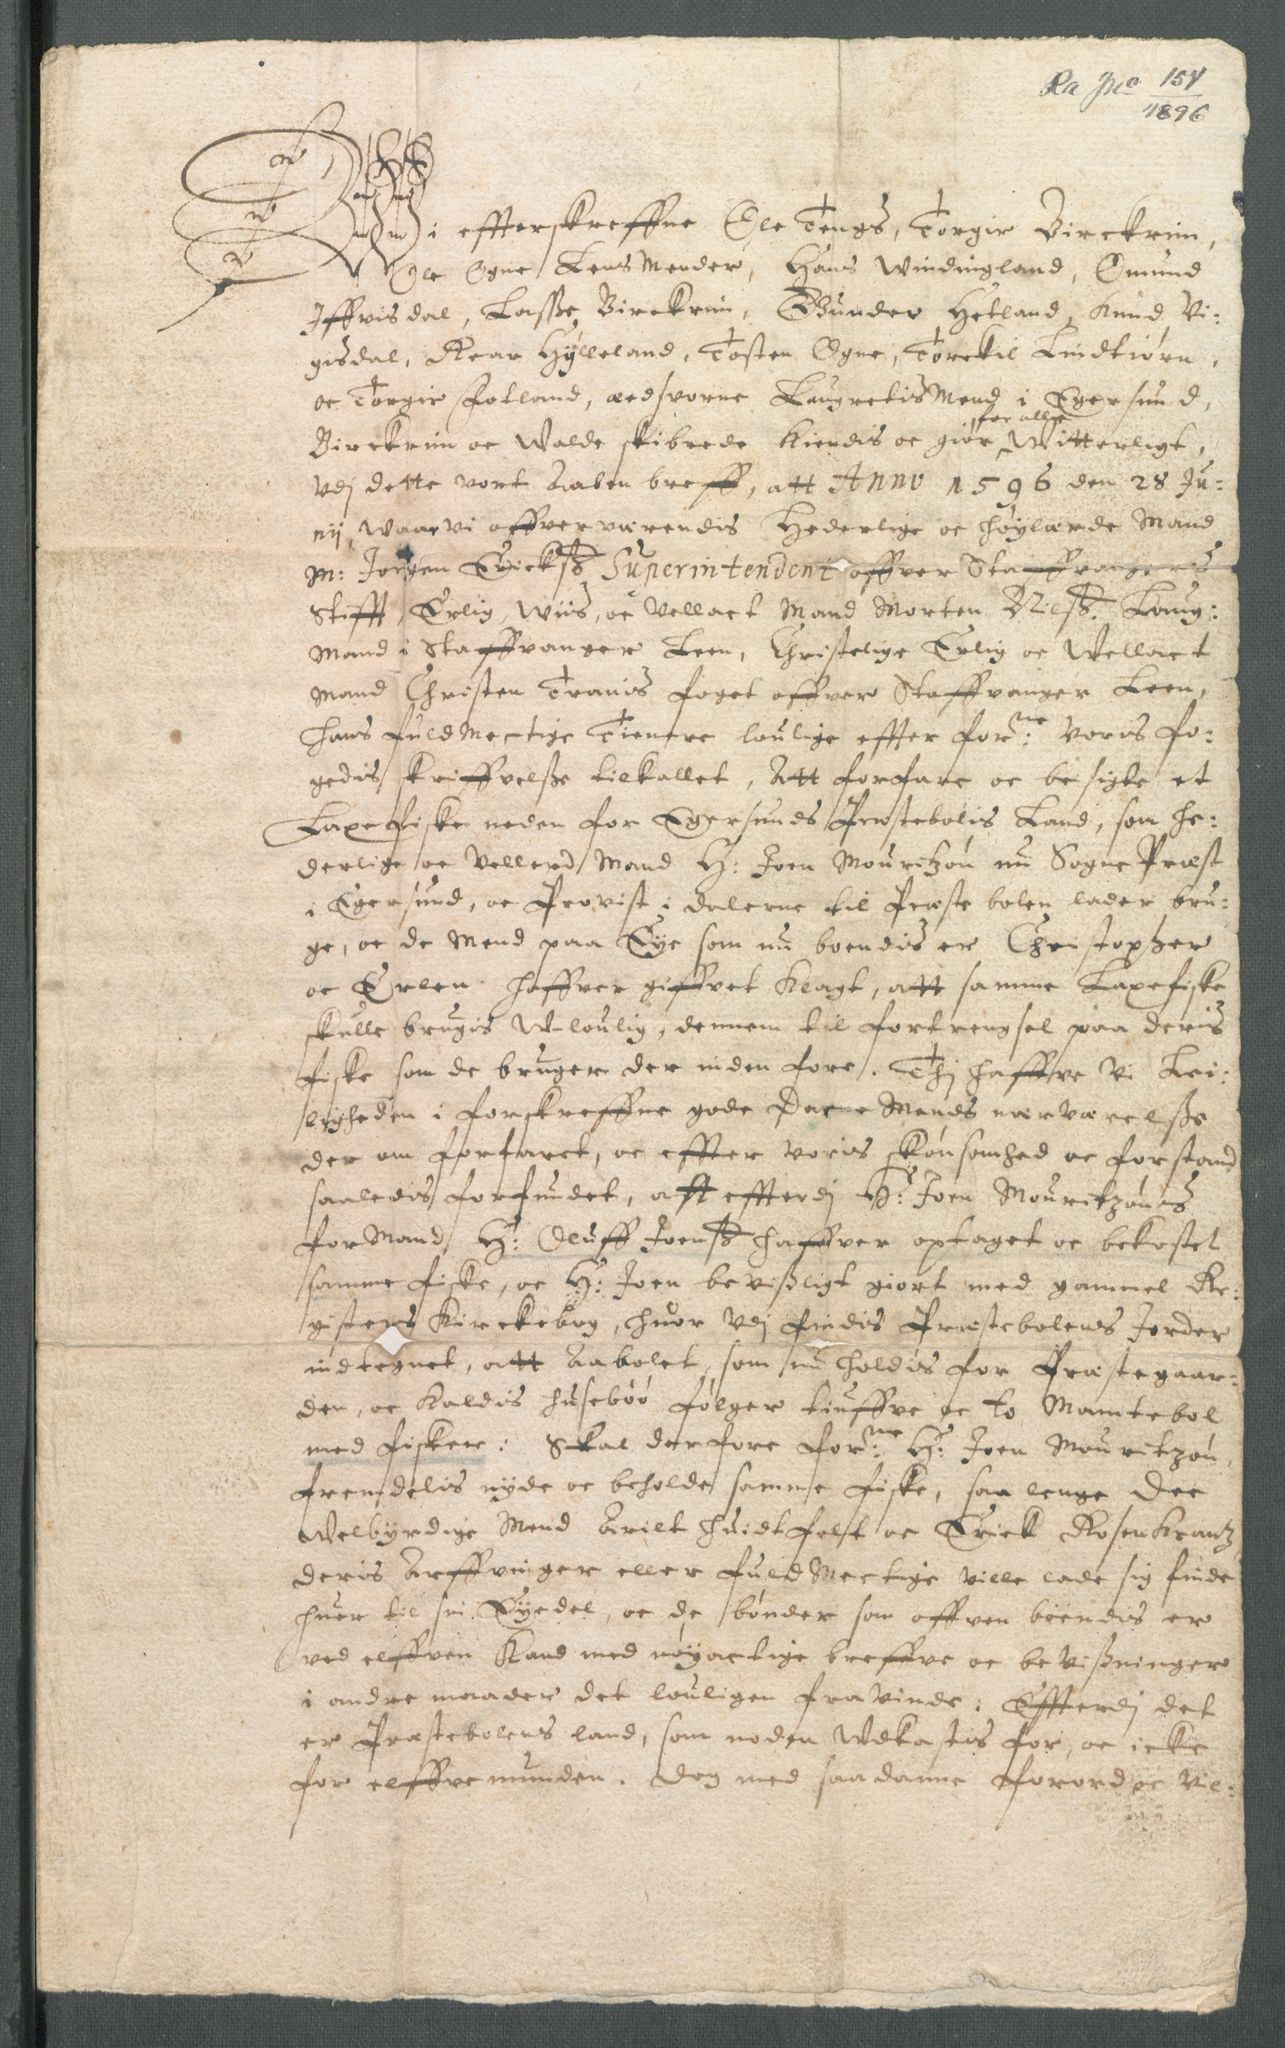 Ra Jno 154
1896
Wi effterskreffne Ole Tengs, Torgir Birckrim,
Ole Ogne Lens Mender, Hans Windingland, Omund
Iffvisdal, Lasse Birckrim, Gunder Hetland, Knud Vi¬
gisdal, Rear Hylleland, Tosten Ogne, Torckil Lindtiørn,
oc Torgir Fotland, aedsvorne Laugretis Mend i Egersund,
Birckrim oc Walde skibrede kiendis oc giør for alle Witterligt,
vdj dette vort Aaben breff, att Anno 1596 den 28 Ju¬
nij, waar vi offververendis Hederlige oc høylærde Mand
M: Jørgen Ericksß Superintendent offver Staffvangers
Stifft, Erlig, wiis, oc vellact Mand Morten Nilsß. Laug¬
Mand i Staffvanger Leen, Christelige Erlig oc Wellact
Mand Christen Tranis foget offver Staffvanger Leen,
hans fuldmectige Tienere loulige effter forne: voris fo¬
gedis skriffvelße tilkallet, Att forfare oc besigte et
Laxefiske neden for Egersunds Præstebolis Land, som he¬
derlige oc vellerd Mand H: Joen Mouritzøn nu Sogne Præst
i Egersund, oc Provist i Dalerne til Præste bolen lader bru¬
ge, oc de Mend paa Eye som nu boendis er Christopher
oc Erlen haffver giffvet klagt, att samme Laxefiske
skulle brugis Wloulig, dennem til fortrengsel paa deris
fiske som de bruger der inden fore. Thj haffve vi Lei¬
ligheden i forskreffne gode Danne Mends nærværelße
der om forfaret, oc effter voris skønsomhed oc forstand
saaledis forfundet, att effterdj H: Joen Mouritzøns
forMand H: Oluff Joensß haffver optaget oc bekostet
samme fiske, oc H: Joen bevißligt giort med gammel Re¬
gisters Kirckebog, huor vdj findis Præstebolens Jorder
indtegnet, att Aabolet, som nu holdis for Præstegaar¬
den, oc kaldis husebøø følger tiuffve oc to Mamtebol
med fisker: Skal der fore forne: H: Joen Mouritzøn,
fremdelis nyde oc beholde samme fiske, saa lenge Dee
Welbyrdige Mend Arilt Huidtfelt oc Erick Rosenkrantz
deris Arffvinger eller fuldMectige ville lade sig finde
huer til sin Eyedel, oc de bønder som offven boendis er
ved elffven kand med nøyactige breffve oc bevißninger
i andre maader det louligen fravinde: Effterdj det
er Præstebolens land, som noden wdkastis for, oc icke
for elffvemunden. Dog med saadanne forord oc vil¬